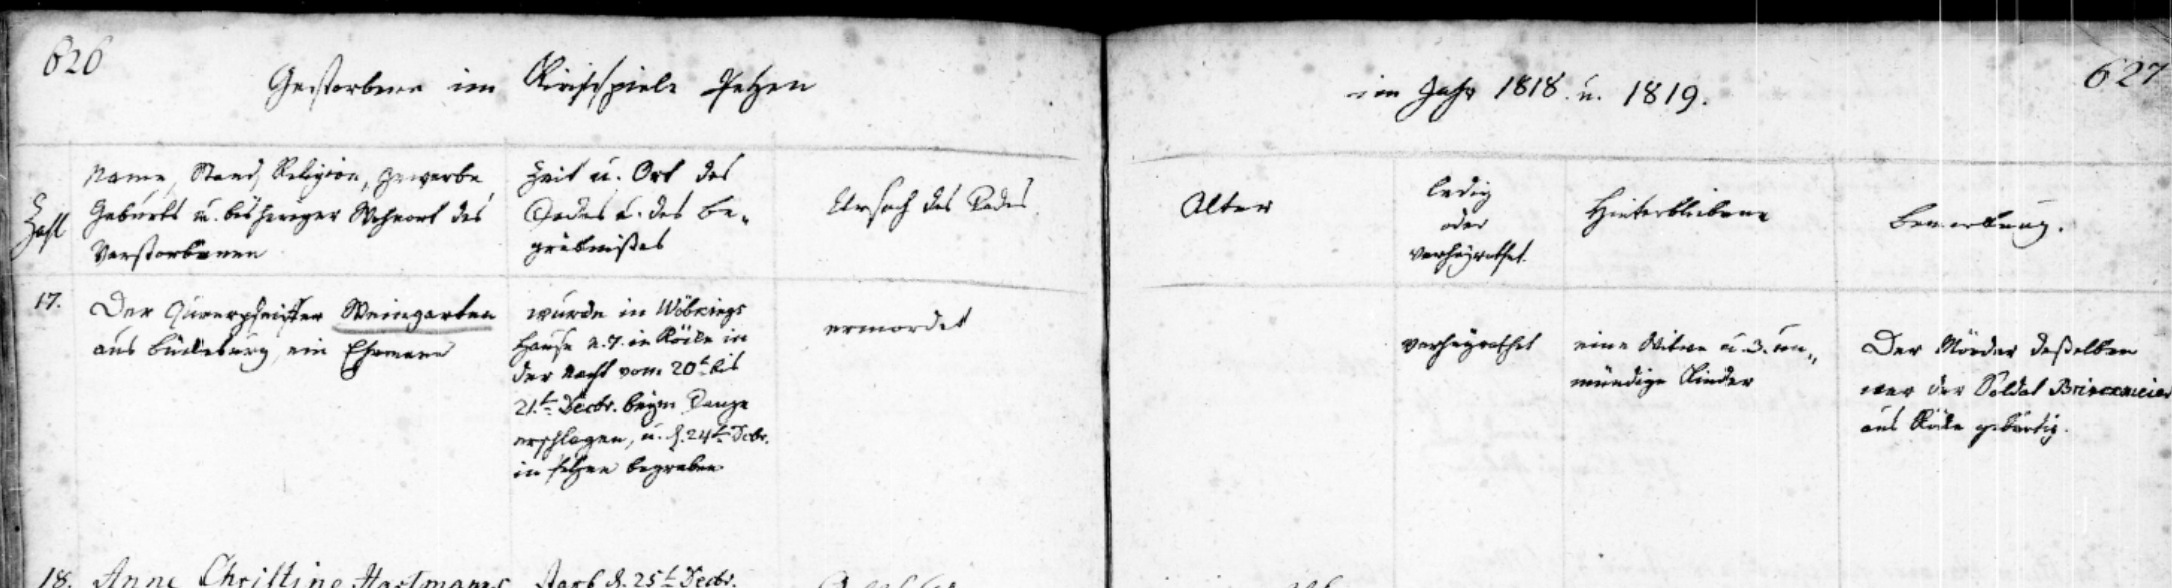 626
Gestorbene im Kirchspiele Petzen
im Jahr 1818. u. 1819.
627
Zahl
Name, Stand, Religion, Gewerbe
Geburts u. bisheriger Wohnort des
Verstorbenen
Zeit u. Ort des
Todes u. des Be-
gräbnißes
Ursach des Todes
Alter
ledig
oder
verheyrathet.
Hinterbliebene
Bemerkung.
17.
Der Querpfeiffer Weingarten
aus Bückeburg, ein Ehemann
wurde in Wöbkings
Hause n. 7. in Röcke in
der Nacht vom 20t. bis
21.t. Decbr. beym Tanze
erschlagen, u. d. 24t. Dcbr.
in Petzen begraben
ermordet
verheyrathet
eine Witwe u. 3. un-
mündige Kinder
Der Mörder deßelben
war der Soldat Brinckmeier
aus Röcke gebürtig.
18. Anne Christine Hartmanns
starb d. 25t. Decbr.